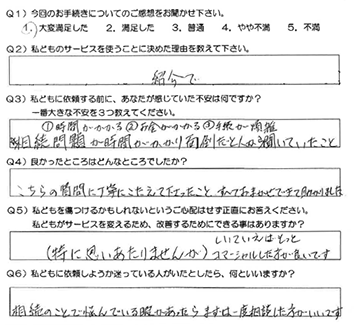 Q1）今回のお手続きについてのご感想をお聞かせ下さい。
1. 大変満足した 2. 満足した 3. 普通 4. やや不満 5. 不満
Q2）私どものサービスを使うことに決めた理由を教えて下さい。
紹介で
Q3）私どもに依頼する前に、あなたが感じていた不安は何ですか？
一番大きな不安を3つ教えてください。
①時間がかかる ②お金がかかる ③手続が煩雑
相続問題が時間がかかり面倒だとんな聞いていたこと
Q4）良かったところはどんなところでしたか？
こちらの質問に丁寧にこたえて下さったこと すべておまかせできて助かりました
Q5）私どもを傷つけるかもしれないというご心配はせず正直にお答えください。
私どもがサービスを変えるため、改善するためにできる事はありますか？
（特に思いあたりませんが） しいていえばもっと
コマーシャルした方が良いです
Q6）私どもに依頼しようか迷っている人がいたとしたら、何といいますか？
相続のことで悩んでいる暇があったらまずは一度相談した方がいいです